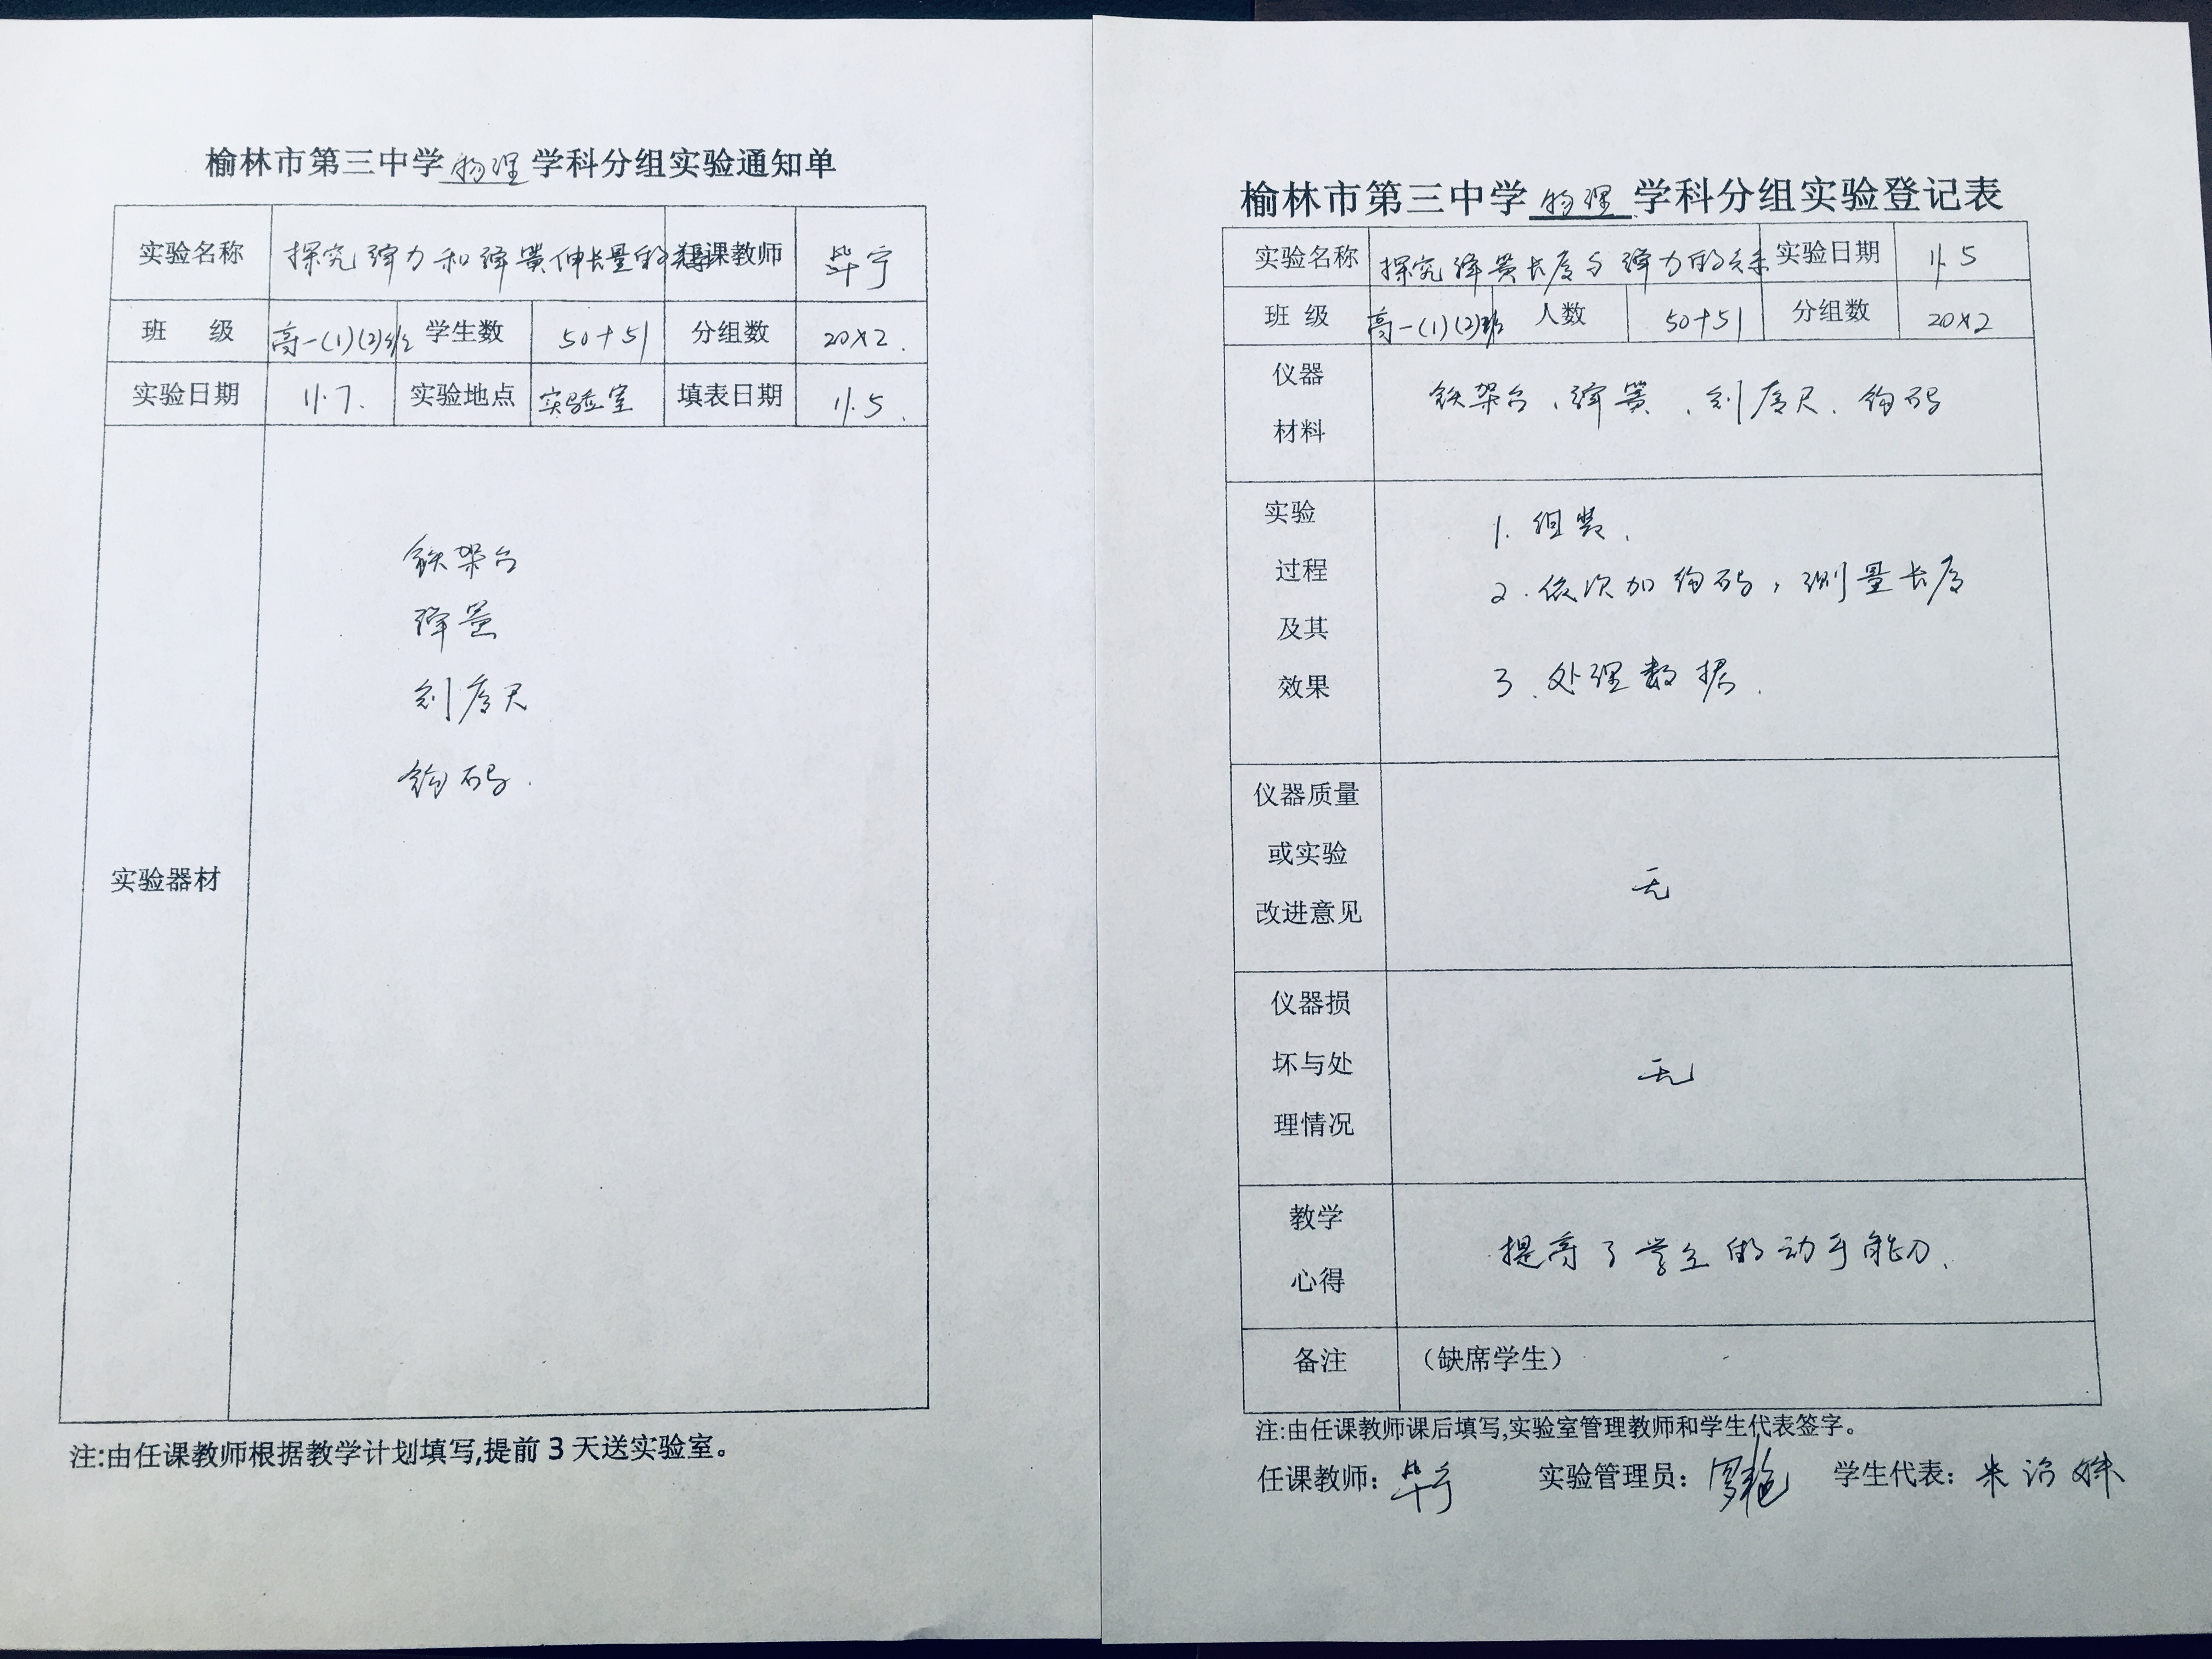 榆林市第三中学物理学科分组实验通知单
实验名称 探究弹力和弹簧伸长量的关系 任课教师 毕宁
班 级 高一(1)(2)班 学生数 50+51 分组数 20×2.
实验日期 11.7. 实验地点 实验室 填表日期 11.5.
实验器材
铁架台
弹簧
刻度尺
钩码.
注:由任课教师根据教学计划填写,提前3天送实验室。
榆林市第三中学物理学科分组实验登记表
实验名称 探究弹簧长度与弹力的关系 实验日期 11.5
班 级 高一(1)(2)班 人数 50+51 分组数 20×2
仪器
材料
铁架台、弹簧、刻度尺、钩码
实验
过程
及其
效果
1.组装.
2.依次加钩码,测量长度
3.处理数据.
仪器质量
或实验
改进意见
无
仪器损
坏与处
理情况
无
教学
心得
提高了学生的动手能力.
备注 (缺席学生)
注:由任课教师课后填写,实验室管理教师和学生代表签字。
任课教师:毕宁 实验管理员:罗艳 学生代表: